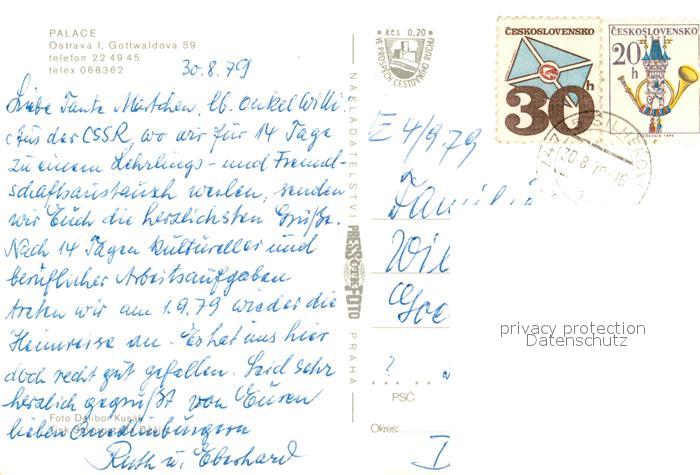 PALACE
Ostrava I, Gottwaldova 59
telefon 22 49 45
telex 068362
30.8.79
Liebe Tante Martchen, lb. Onkel Willi!
Aus der CSSR, wo wir für 14 Tage
zu einem Lehrlings- und Freund-
schaftsaustausch weilen, senden
wir Euch die herzlichsten Grüße.
Nach 14 Tagen kultureller und
beruflicher Arbeitsaufgaben
treten wir am 1.9.79 wieder die
Heimreise an. Es hat uns hier
doch recht gut gefallen. Seid sehr
herzlich gegrüßt von Euren
lieben Quedlinburgern
Ruth u. Eberhard
Foto Dalibor Kusák
NAKLADATELSTVÍ
PRESSFOTO
PRAHA
Kčs 0,20
VE PROSPĚCH CESTOVNÍHO RUCHU
ČESKOSLOVENSKO
30h
ČESKOSLOVENSKO
20h
30.8.79-16
E 4/9.79
Famili
Wil
Goe
?
PSČ
Okres:
D
privacy protection
Datenschutz